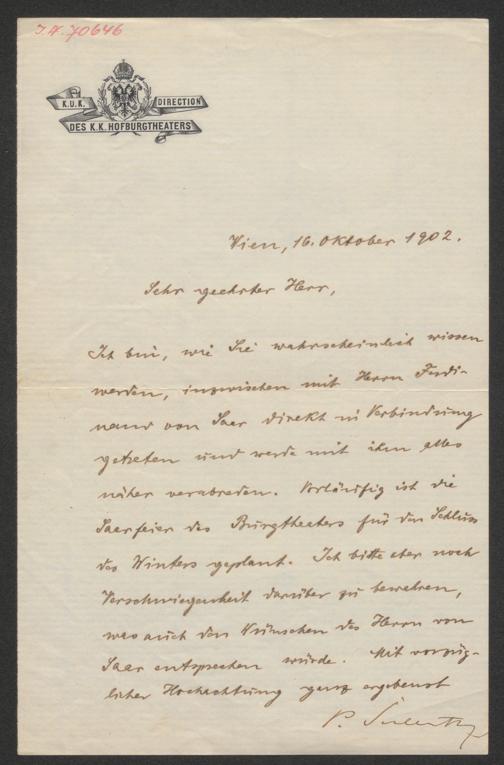 I.N. 70646
K.U.K. DIRECTION
DES K.K. HOFBURGTHEATERS
Wien, 16. Oktober 1902.
Sehr geehrter Herr,
Ich bin, wie Sie wahrscheinlich wissen
werden, inzwischen mit Herrn Ferdi-
nand von Saar direkt in Verbindung
getreten und werde mit ihm alles
näher verabreden. Vorläufig ist die
Saarfeier des Burgtheaters für den Schluss
des Winters geplant. Ich bitte aber noch
Verschwiegenheit darüber zu bewahren,
was auch den Wünschen des Herrn von
Saar entsprechen würde. Mit vorzüg-
licher Hochachtung ganz ergebenst
P.